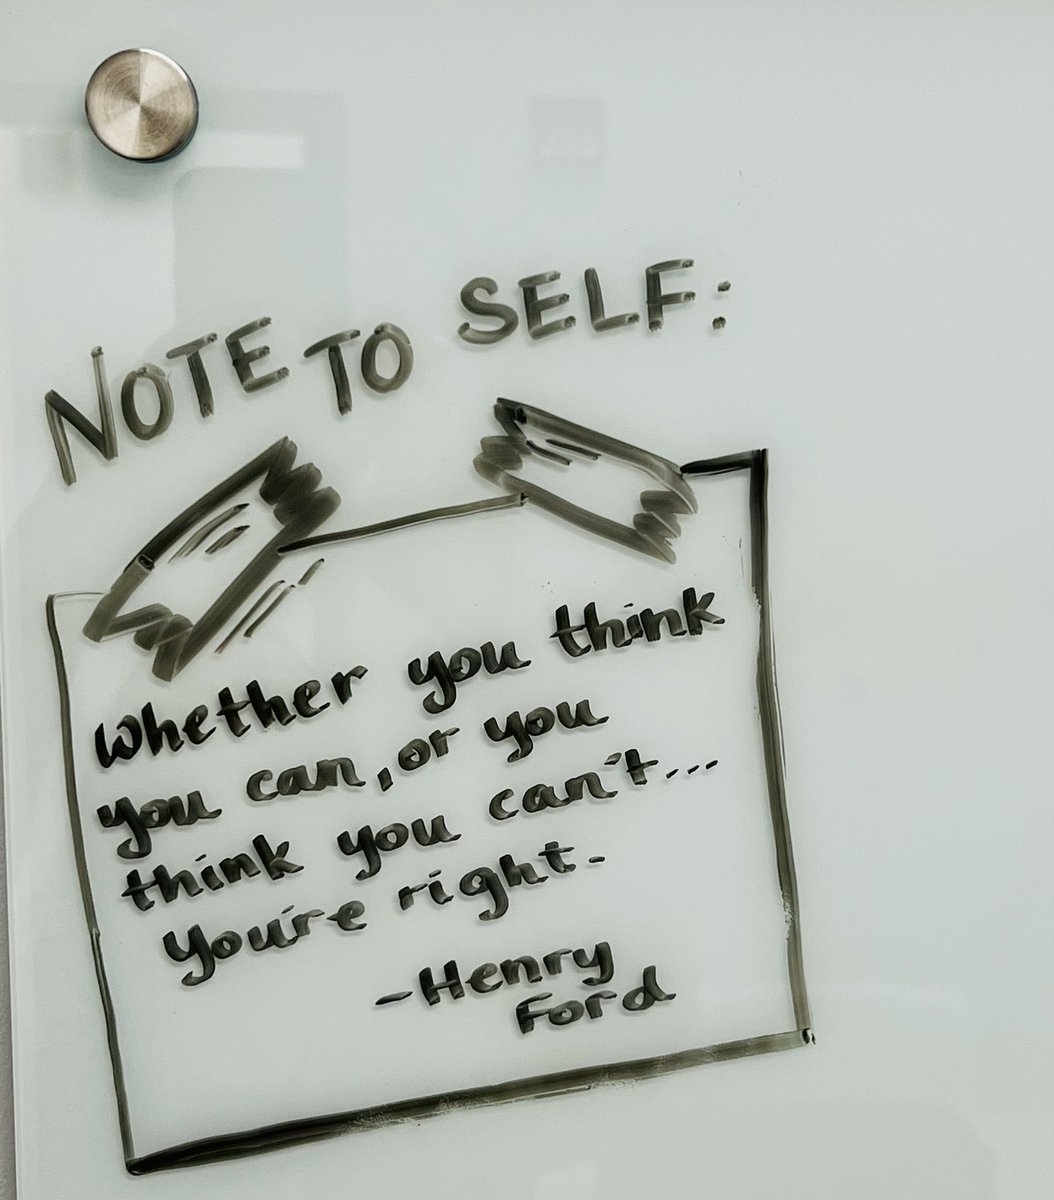 NOTE TO SELF:
Whether you think
you can, or you
think you can't...
you're right.
- Henry
Ford